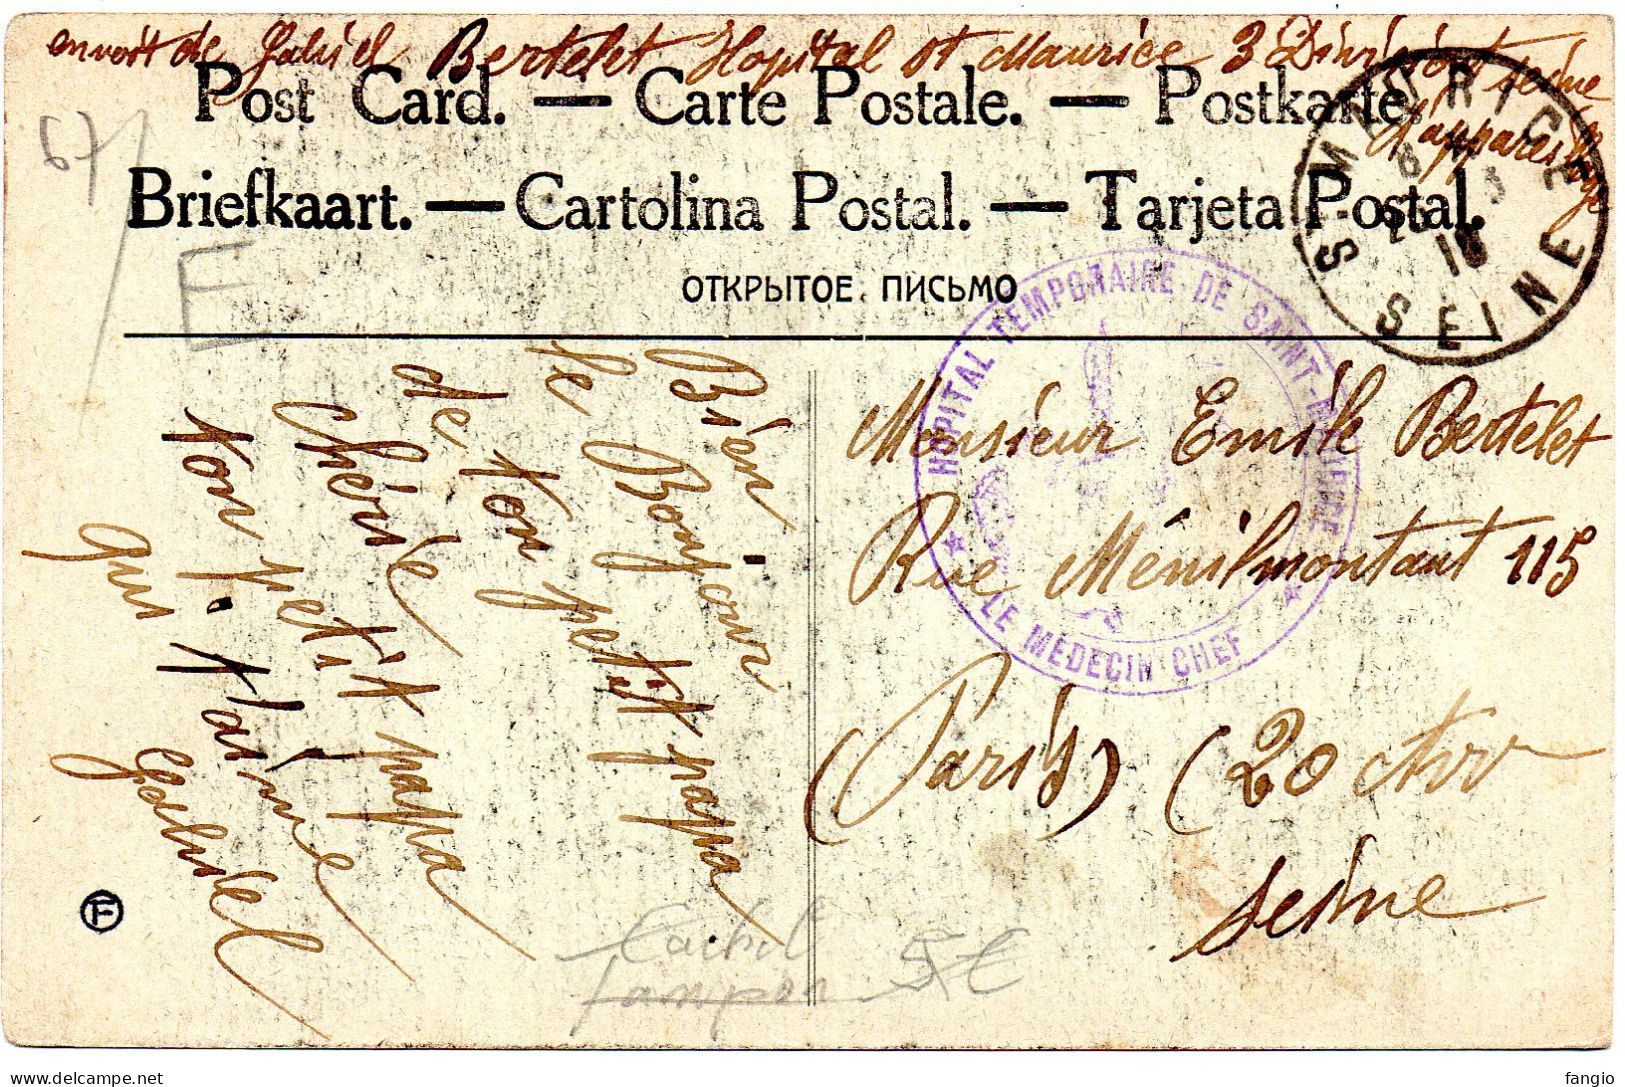 envoit de Gabriel Bertelet Hopital St Maurice 3 Division Seine
d'appareillage
Post Card. — Carte Postale. — Postkarte.
Briefkaart. — Cartolina Postal. — Tarjeta Postal.
ОТКРЫТОЕ ПИСЬМО
67
F
ST MAURICE
SEINE
HOPITAL TEMPORAIRE DE SAINT-MAURICE
★ LE MÉDECIN CHEF ★
Bien
le Bonjour
de ton petit papa
chérie
ton petit papa
qui t'aime
Gabriel
Monsieur Emile Bertelet
Rue Ménilmontant 115
(Paris) (20 Arr
Seine
F
Cachet
tampon 5€
delcampe.net
fangio